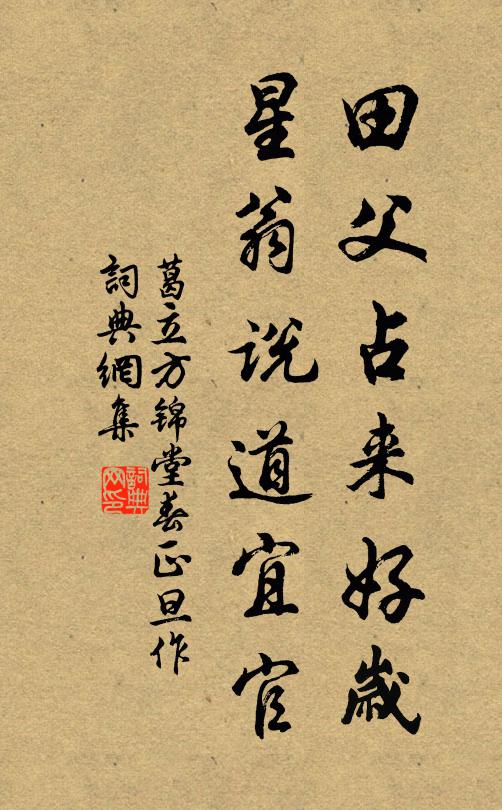 田父占来好歲
星翁说道宜官
葛立方锦堂春正旦作
詞典網集
詞典網印